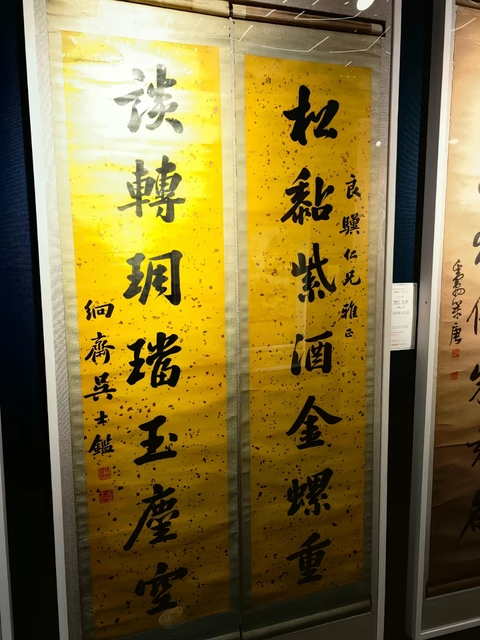 松黏紫酒金螺重
良驥仁兄雅正
談轉璫玉麈空
絅齋吳士鑑